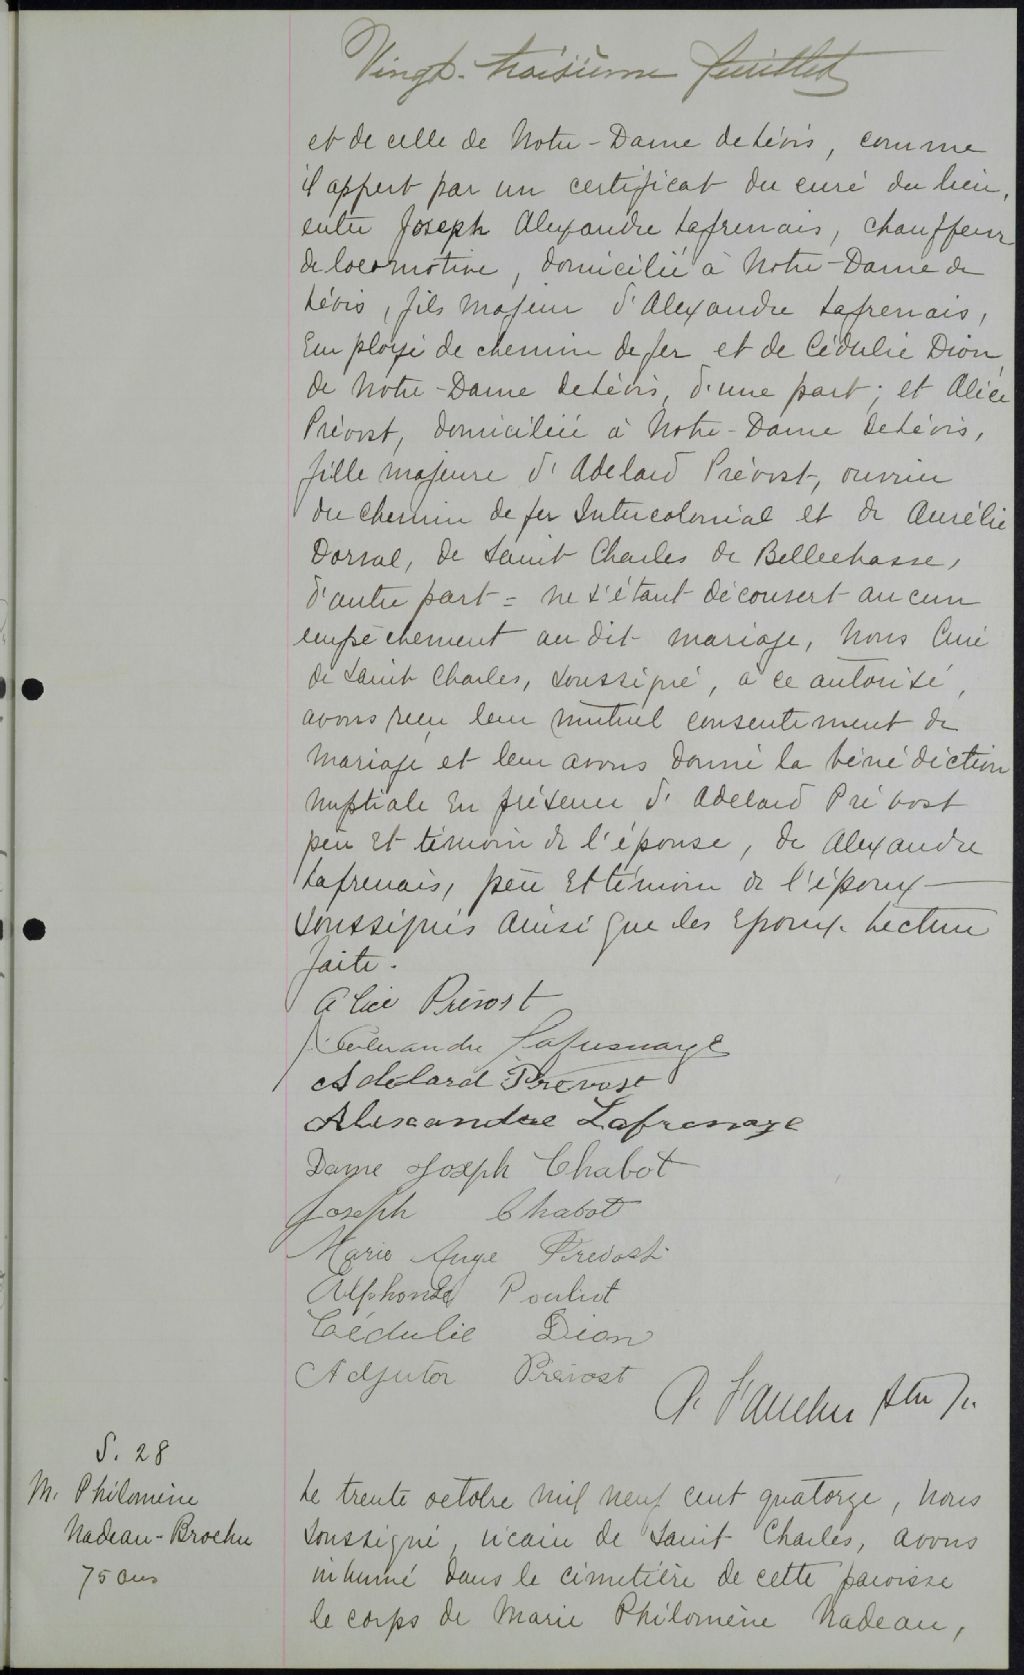 Vingt-troisième feuillet
et de celle de Notre-Dame de Lévis, comme
il appert par un certificat du curé du lieu,
entre Joseph Alexandre Lafrenais, chauffeur
de locomotive, domicilié à Notre-Dame de
Lévis, fils majeur d'Alexandre Lafrenais,
Employé de chemin de fer et de Cédulie Dion
de Notre-Dame de Lévis, d'une part; et Alice
Prévost, domiciliée à Notre-Dame de Lévis,
fille majeure d'Adelard Prévost, ouvrier
du chemin de fer Intercolonial et de Aurélie
Dorval, de Saint Charles de Bellechasse,
d'autre part = ne s'étant découvert aucun
empêchement au dit mariage, Nous Curé
de Saint Charles, soussigné, à ce autorisé,
avons reçu leur mutuel consentement de
mariage et leur avons donné la bénédiction
nuptiale en présence d'Adelard Prévost
père et témoin de l'épouse, de Alexandre
Lafrenais, père et témoin de l'époux —
soussignés ainsi que les Epoux. Lecture
faite.
Alice Prévost
J. Alexandre Lafresnaye
Adélard Prévost
Alexandre Lafresnaye
Dame Joseph Chabot
Joseph Chabot
Marie Ange Prévost
Alphonse Pouliot
Cédulie Dion
Adjutor Prévost
S. 28
M. Philomène
Nadeau-Brochu
75 ans
Le trente octobre mil neuf cent quatorze, nous
soussigné, vicaire de Saint Charles, avons
inhumé dans le cimetière de cette paroisse
le corps de Marie Philomène Nadeau,